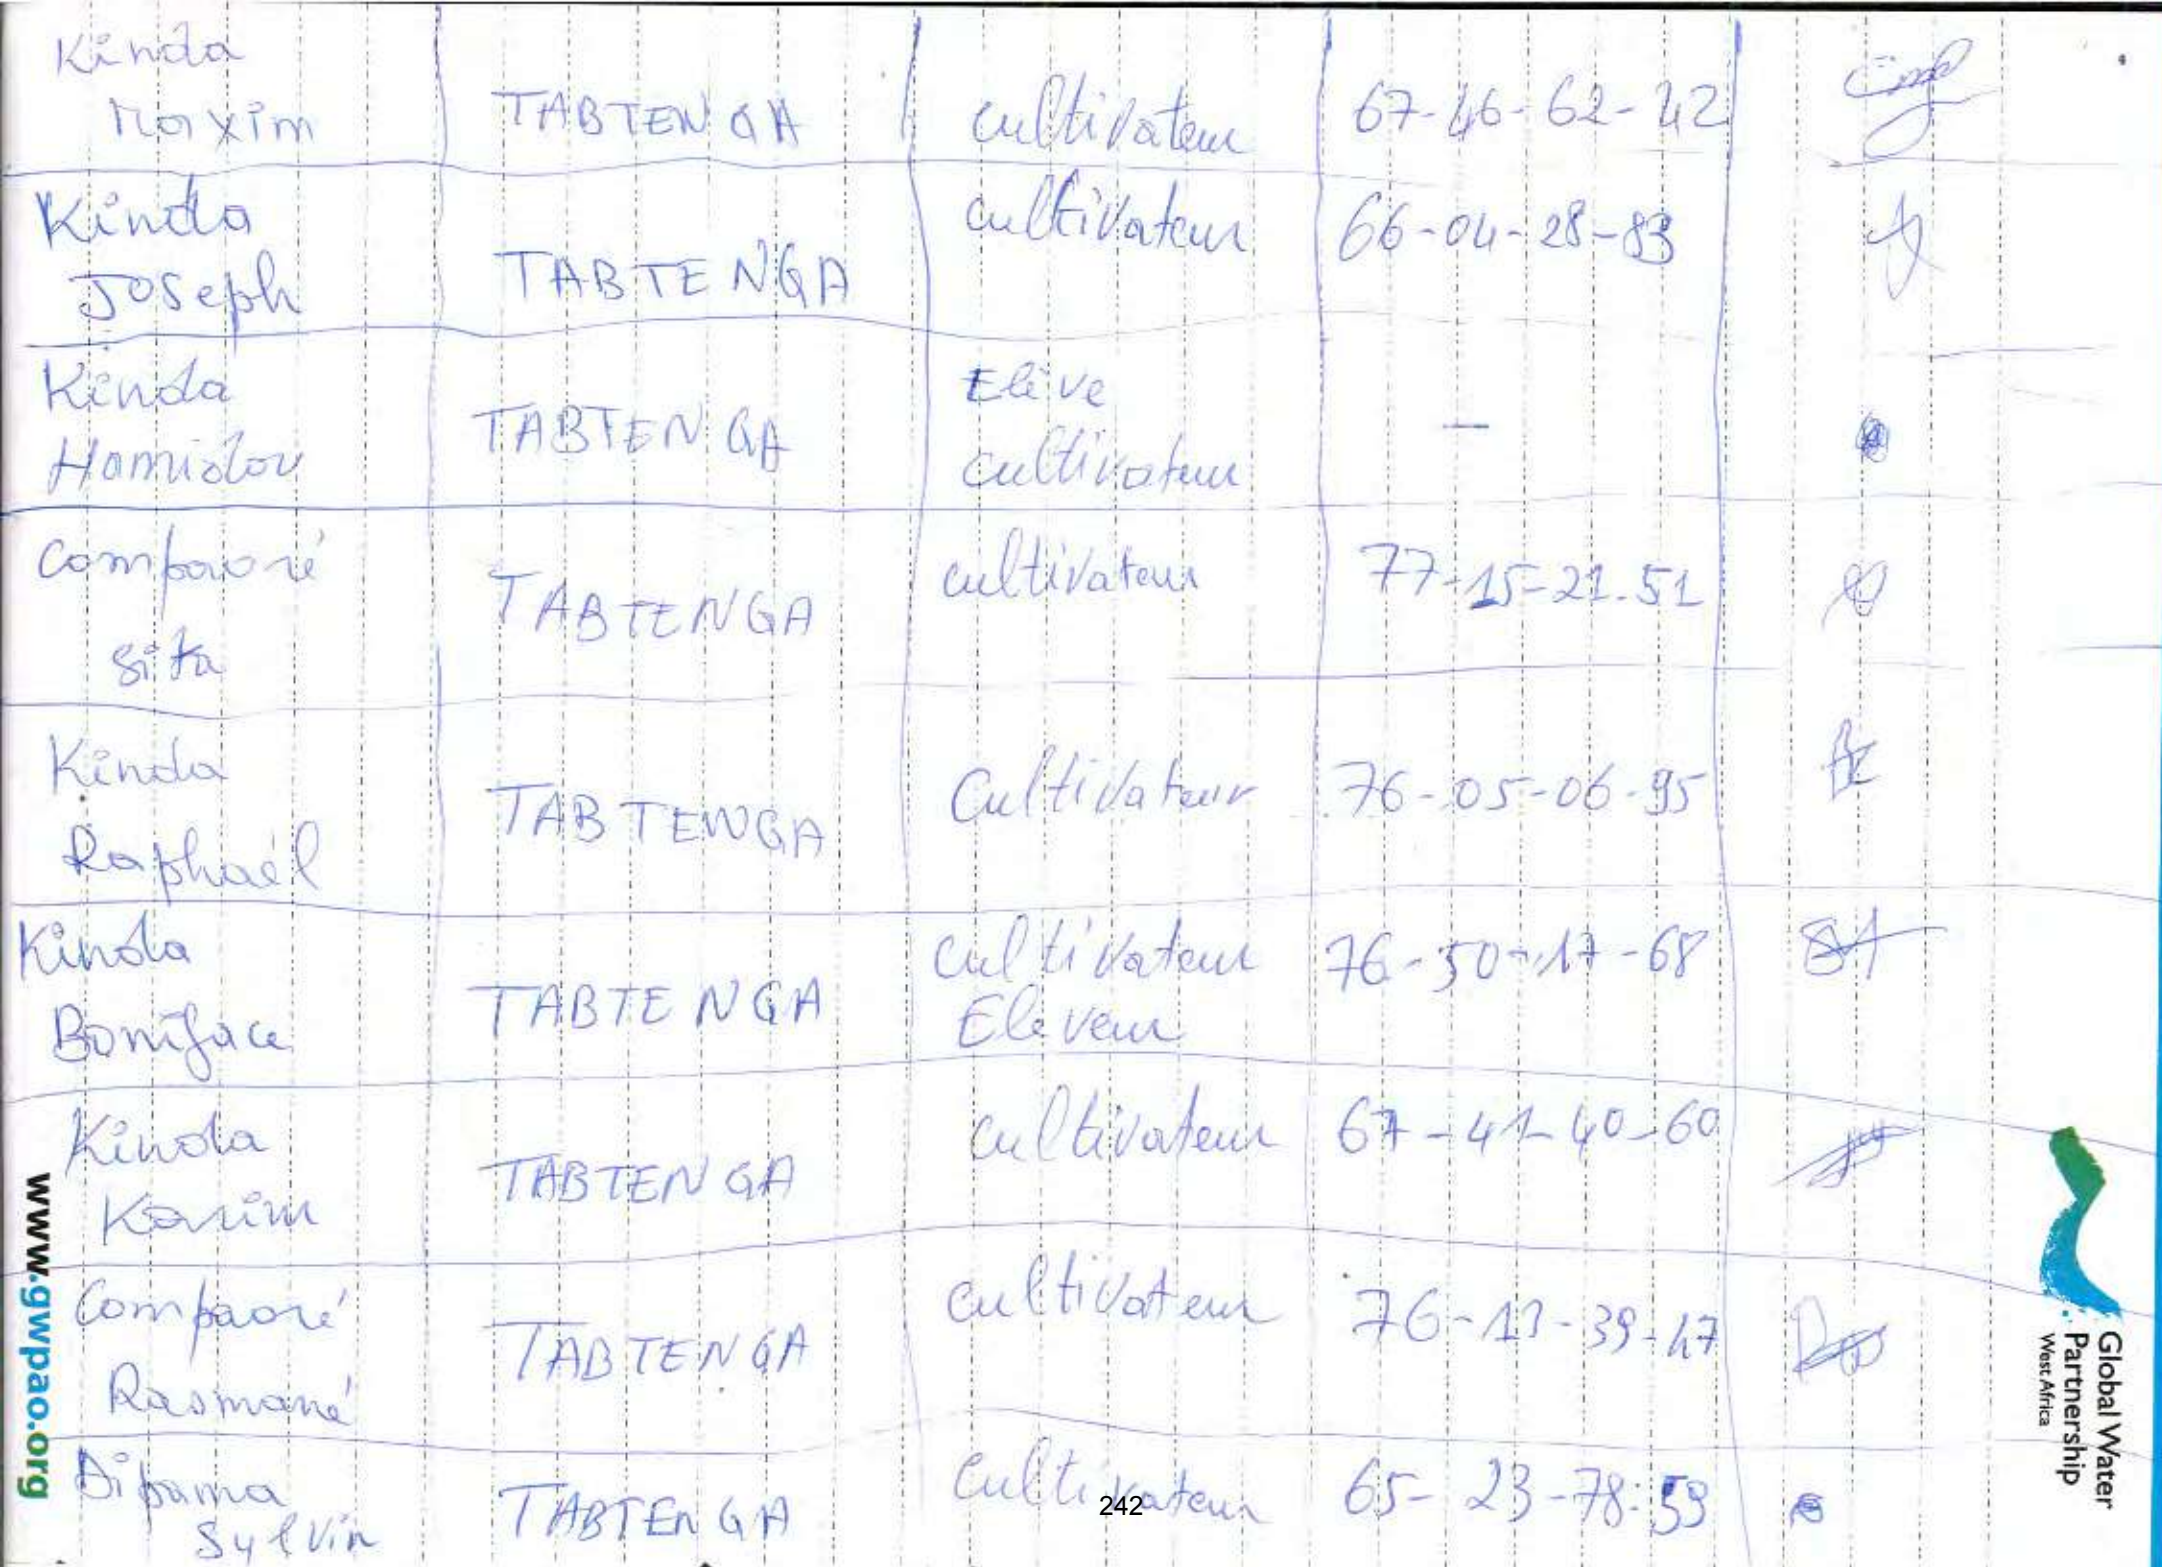 Kinda
Maxim TABTENGA cultivateur 67-46-62-42
Kinda
Joseph TABTENGA cultivateur 66-04-28-83
Kinda
Hamidou TABTENGA Elève
cultivateur —
Compaoré
Sita TABTENGA cultivateur 77-15-21.51
Kinda
Raphaël TABTENGA Cultivateur 76-05-06-95
Kinda
Boniface TABTENGA cultivateur 76-50-17-68
Eleveur
Kinda
Karim TABTENGA cultivateur 67-41-40-60
Compaoré
Rasmané TABTENGA cultivateur 76-13-39-47
Dipama
Sylvin TABTENGA cultivateur 65-23-78-59
242
www.gwpao.org
Global Water
Partnership
West Africa